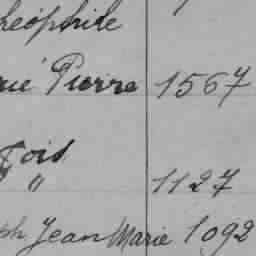 héophile
rie Pierre 1567
çois
" 1127
ph Jean Marie 1092